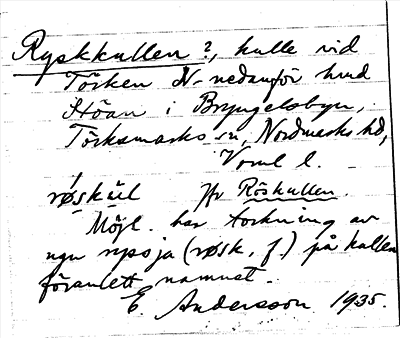 Ryskkullen?, kulle vid
Törken N. nedanför hmd
Stöan i Bryngelsbyn,
Törksmarks sn, Nordmarks hd,
Värml l.
røskul Jfr Röskullen.
Möjl. har torkning av
ngn mossja (røsk, f.) på kullen
föranlett namnet.
E. Andersson 1935.